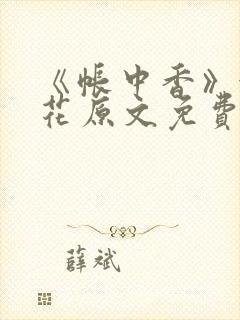 《帳中香》
花原文免費
薛斌